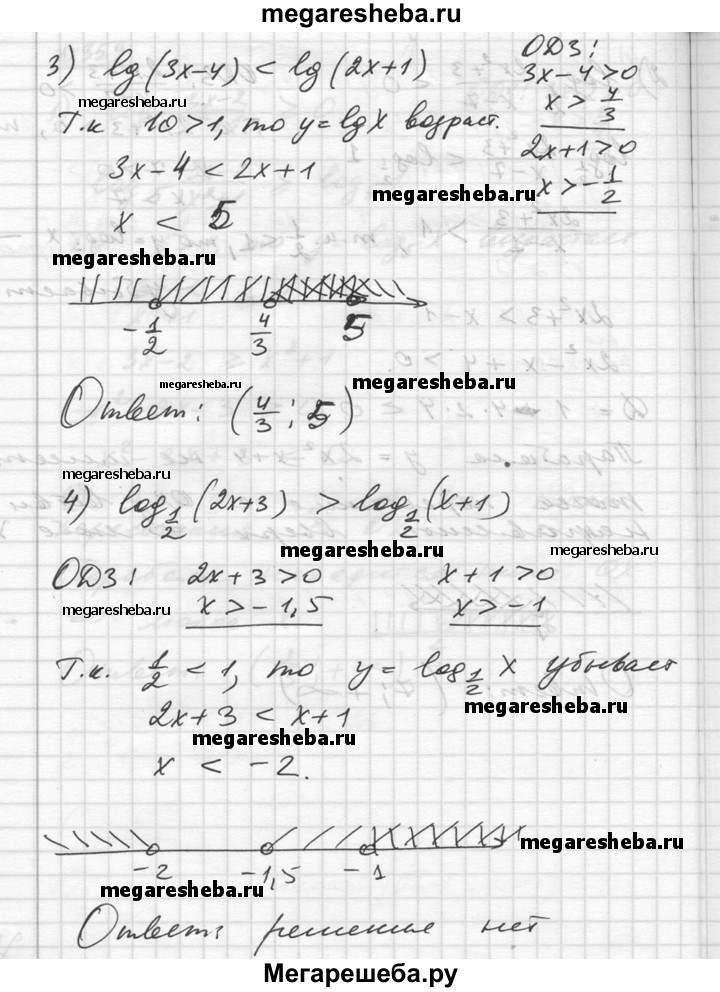 megaresheba.ru
3) lg(3x-4) < lg(2x+1)
ОДЗ:
3x-4>0
megaresheba.ru
x > 4/3
Т.к 10>1, то y=lgx возраст.
2x+1>0
3x-4 < 2x+1
x > -1/2
megaresheba.ru
x < 5
megaresheba.ru
-1/2 4/3 5
megaresheba.ru
megaresheba.ru
Ответ: (4/3; 5)
megaresheba.ru
4) log 1/2 (2x+3) > log 1/2 (x+1)
megaresheba.ru
megaresheba.ru
ОДЗ: 2x+3>0 x+1>0
megaresheba.ru
x > -1,5 x > -1
Т.к. 1/2 < 1, то y = log 1/2 x убывает
megaresheba.ru
2x+3 < x+1
megaresheba.ru
x < -2.
megaresheba.ru
-2 -1,5 -1
megaresheba.ru
Ответ: решение нет
Мегарешеба.ру